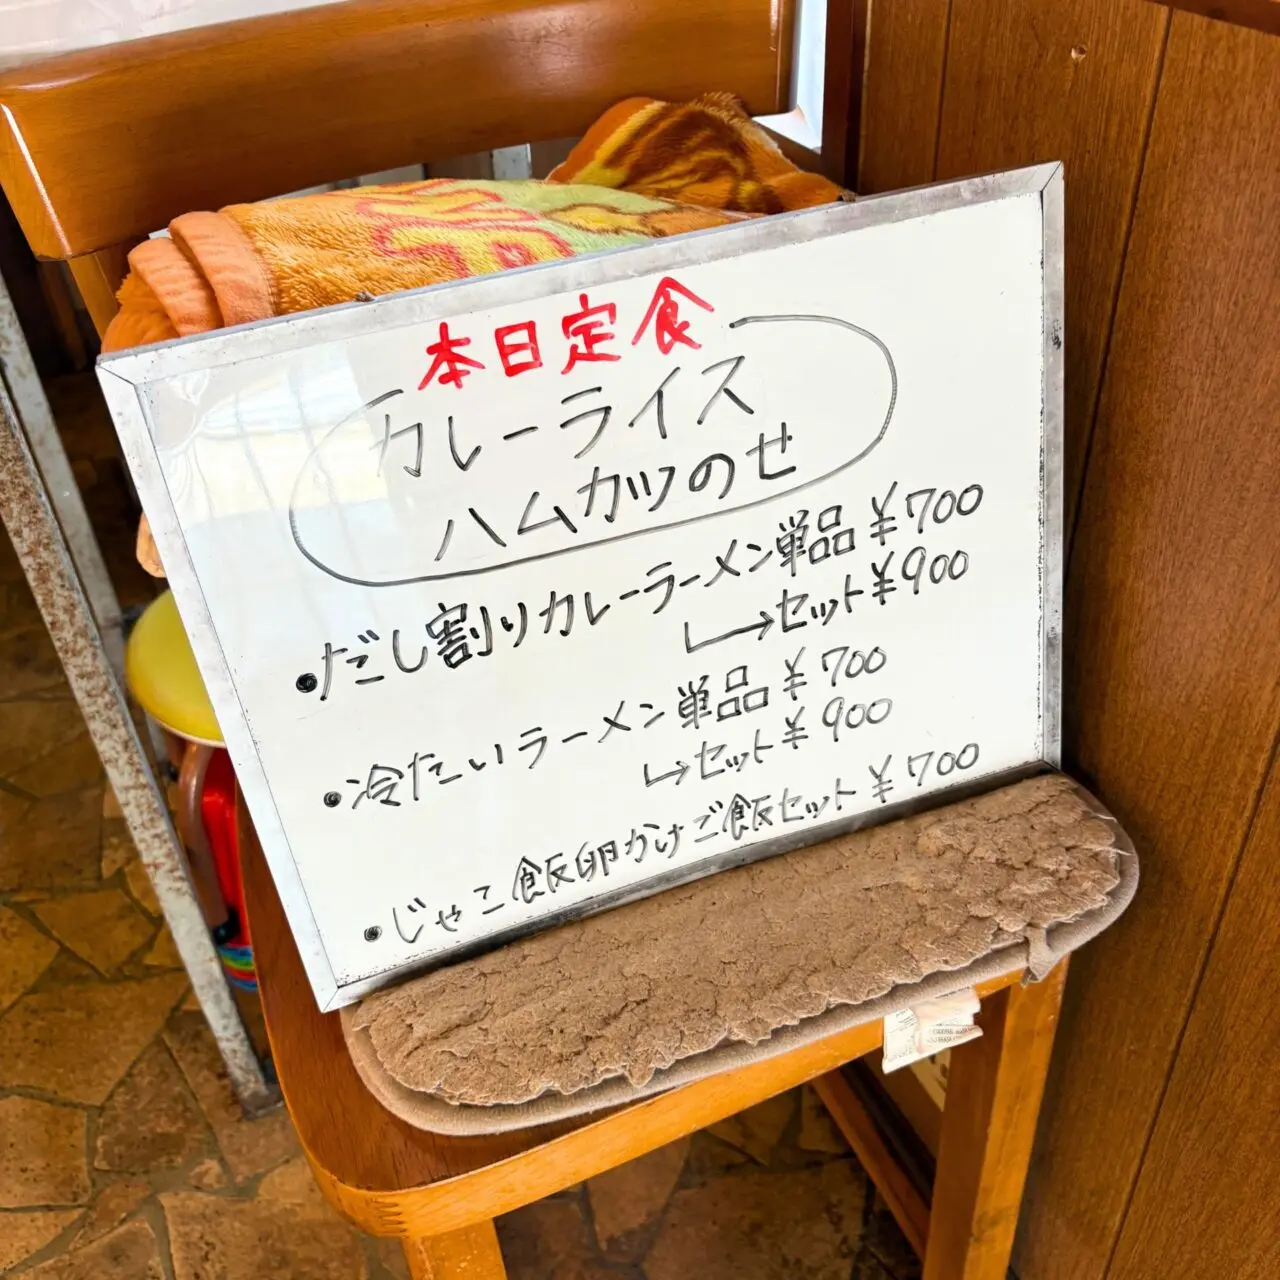 本日定食
カレーライス
ハムカツのせ
●だし割りカレーラーメン単品¥700
→セット¥900
●冷たいラーメン単品¥700
→セット¥900
●じゃこ飯卵かけご飯セット¥700